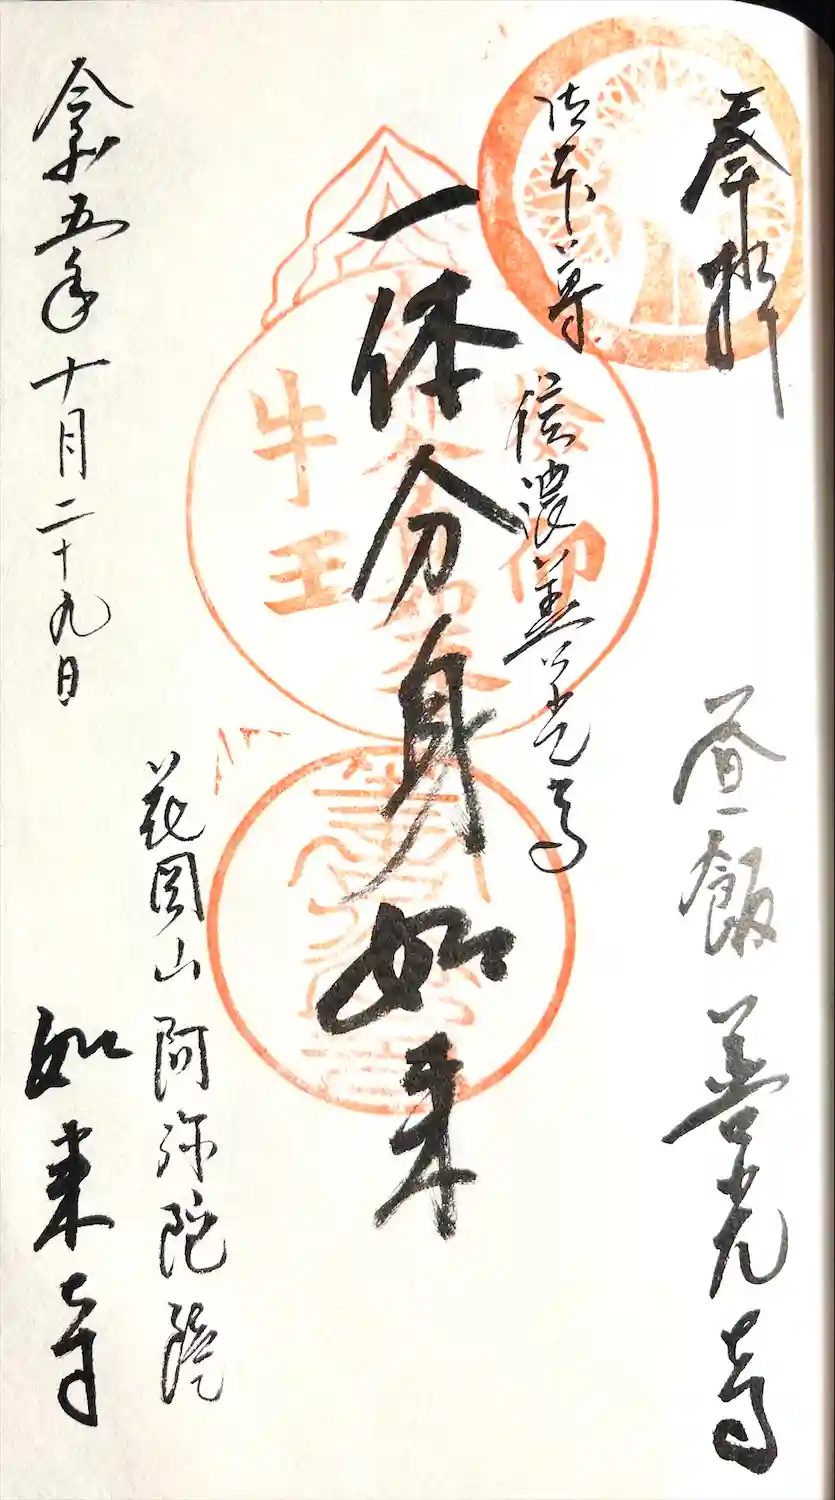 奉拝
昼飯 善光寺
御本尊 信濃善光寺
一体分身如来
牛王
花岡山 阿弥陀院
令和五年十月二十九日
如来寺